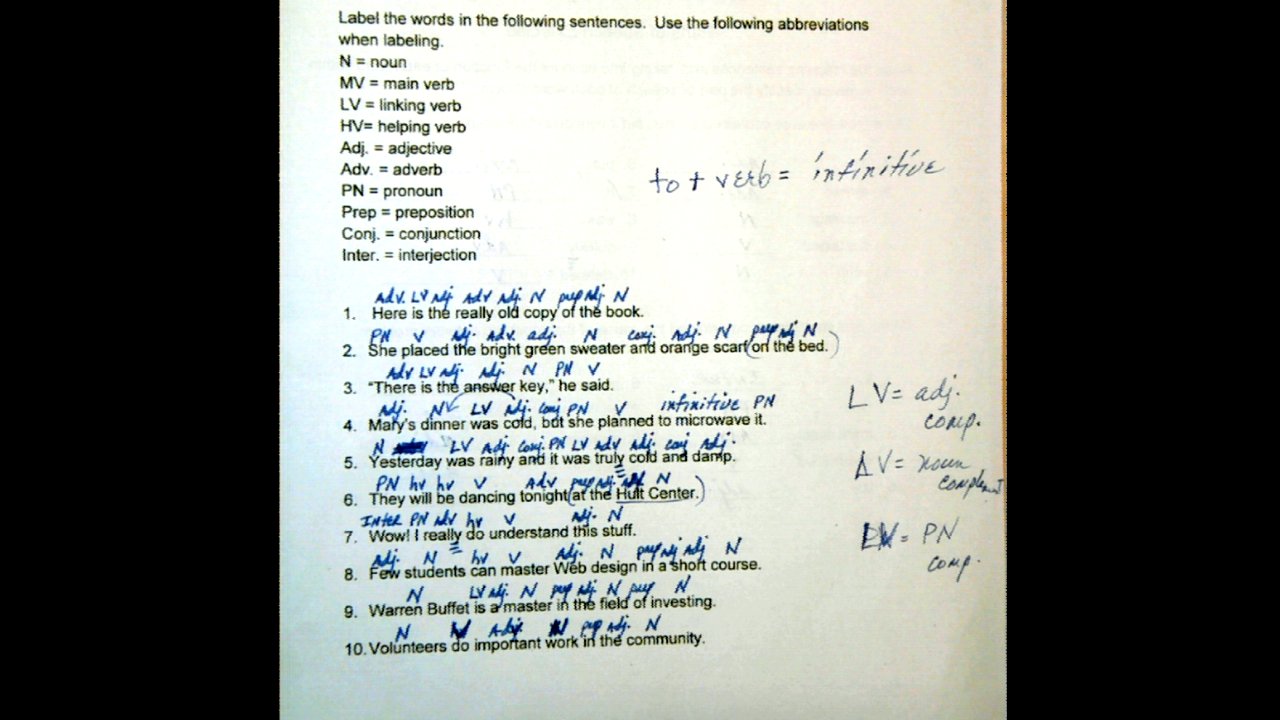 Label the words in the following sentences. Use the following abbreviations
when labeling.
N = noun
MV = main verb
LV = linking verb
HV= helping verb
Adj. = adjective
Adv. = adverb
PN = pronoun
Prep = preposition
Conj. = conjunction
Inter. = interjection
to + verb = infinitive
Adv. LV Adj Adv Adj N prep Adj N
1. Here is the really old copy of the book.
PN V Adj. Adv. adj. N conj. Adj. N prep Adj N
2. She placed the bright green sweater and orange scarf (on the bed.)
Adv LV Adj. Adj. N PN V
3. “There is the answer key,” he said.
Adj. N LV Adj. conj PN V infinitive PN
4. Mary's dinner was cold, but she planned to microwave it.
N LV Adj conj. PN LV Adv Adj. conj Adj.
5. Yesterday was rainy and it was truly cold and damp.
PN hv hv V Adv prep Adj. N
6. They will be dancing tonight (at the Hult Center.)
Inter PN Adv hv V Adj. N
7. Wow! I really do understand this stuff.
Adj. N hv V Adj. N prep Adj Adj N
8. Few students can master Web design in a short course.
N LV Adj. N prep Adj. N prep N
9. Warren Buffet is a master in the field of investing.
N V Adj. N prep Adj. N
10. Volunteers do important work in the community.
LV= adj.
comp.
LV= noun
complement
LV= PN
comp.